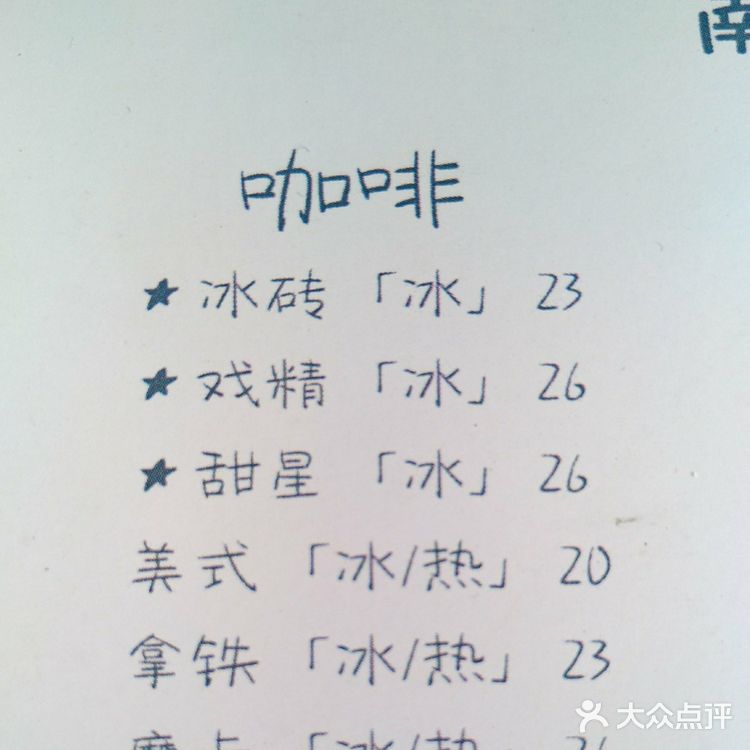 南
咖啡
★ 冰砖「冰」 23
★ 戏精「冰」 26
★ 甜星「冰」 26
美式「冰/热」 20
拿铁「冰/热」 23
摩卡「冰/热」 26
大众点评